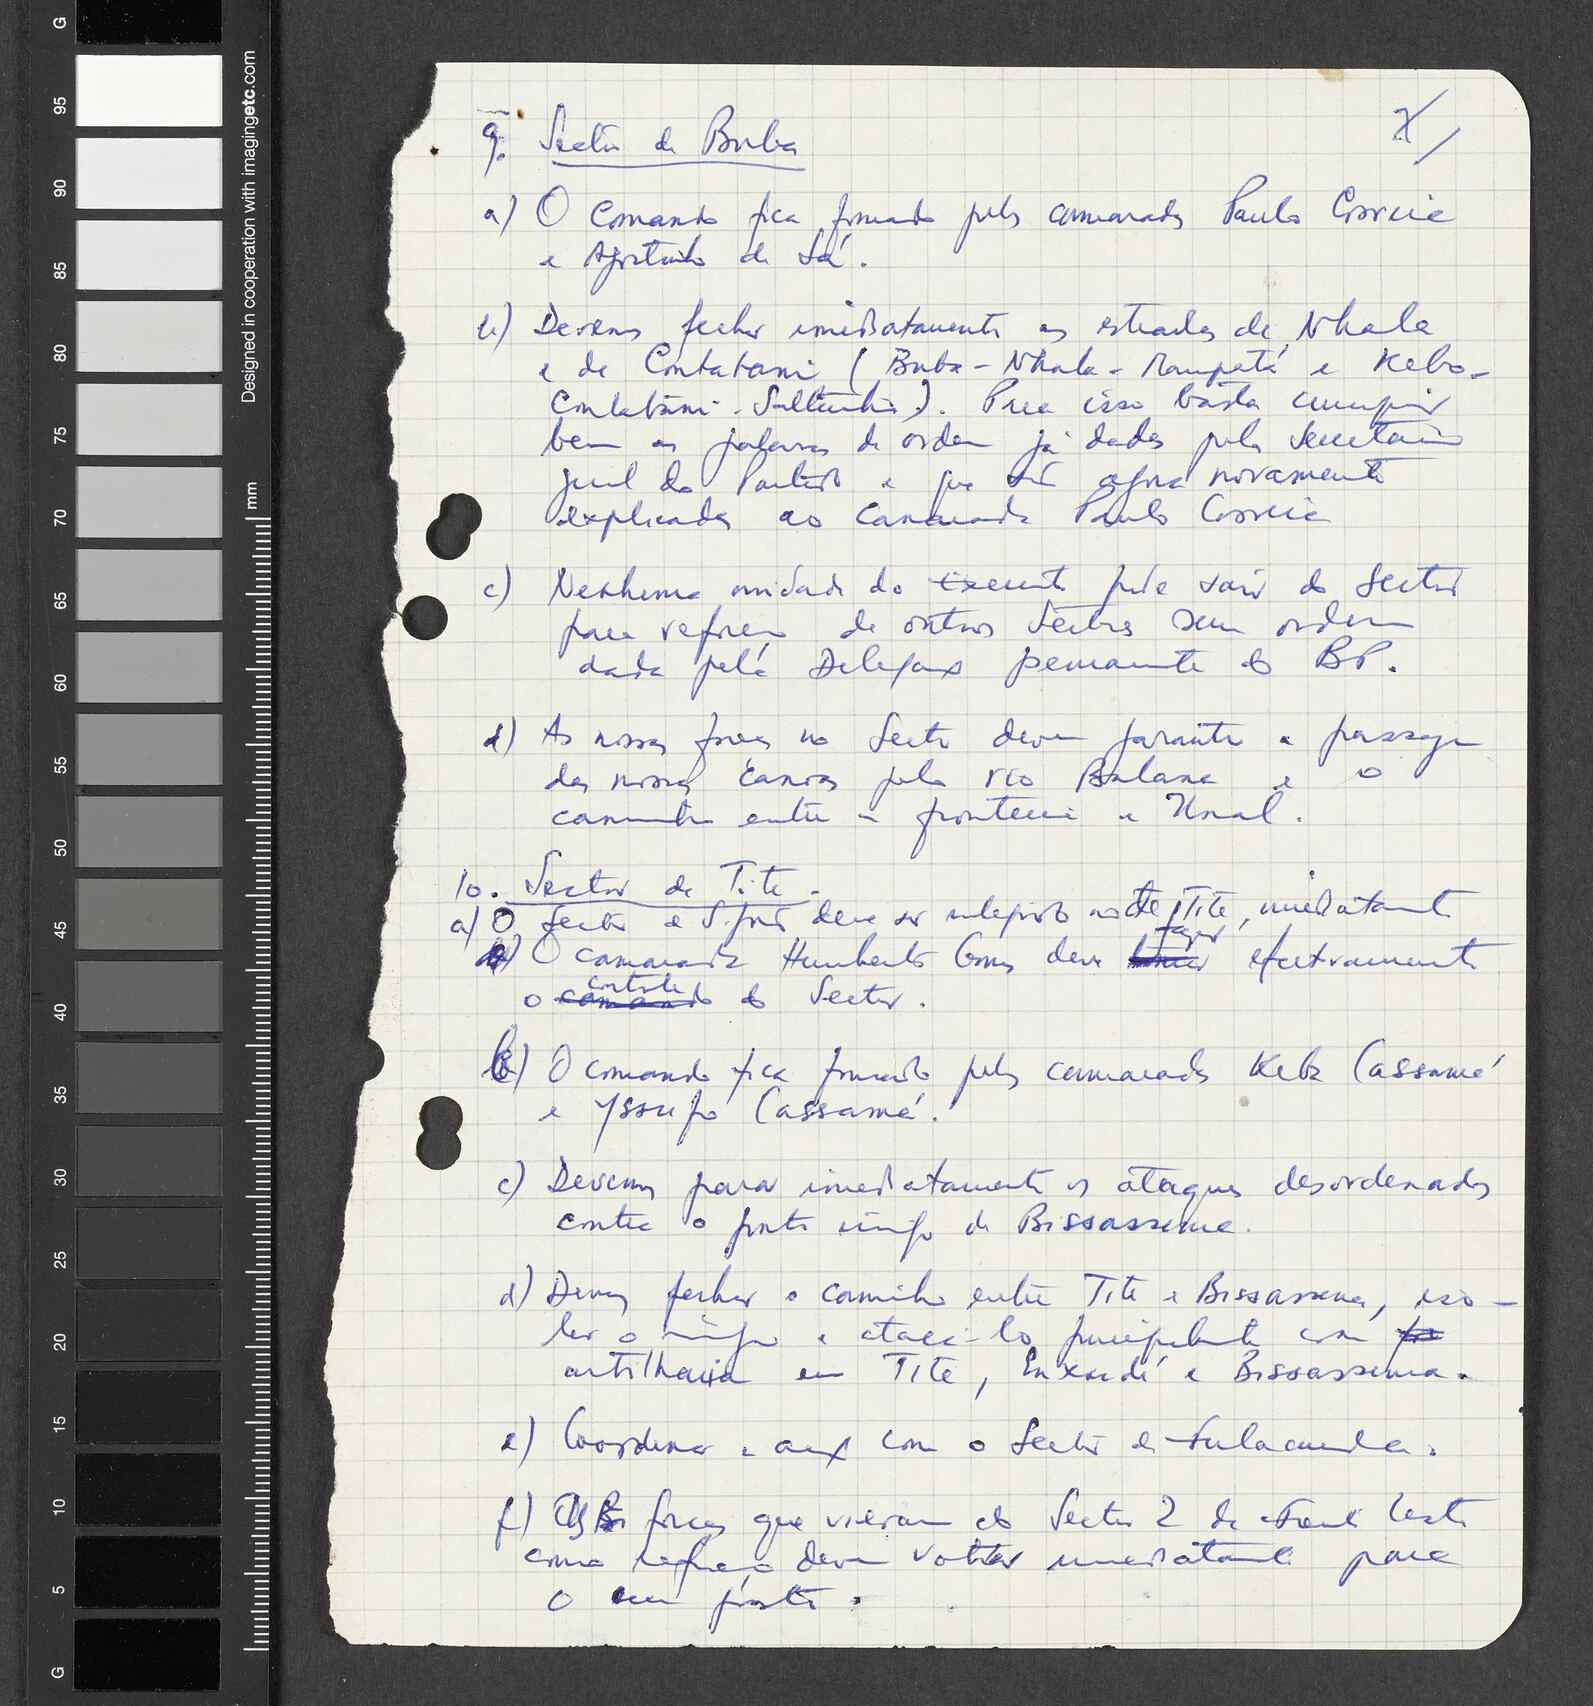 X/
9. Sector de Buba
a) O Comando fica formado pelos camaradas Paulo Correia
e Agostinho de Sá.
b) Devemos fechar imediatamente as estradas de Nhala
e de Contabani (Buba-Nhala-Mampatá e Kebo-
Contabani-Saltinho). Para isso basta cumprir
bem as palavras de ordem já dadas pelo Secretário
geral do Partido e que são agora novamente
explicadas ao camarada Paulo Correia
c) Nenhuma unidade do Exército pode sair do Sector
para reforço de outros Sectores sem ordem
dada pela Delegação permanente do BP.
d) As nossas forças no Sector devem garantir a passagem
das nossas canoas pelo rio Balana e o
caminho entre a fronteira e Unal.
10. Sector de Tite.
a) O Sector de deve ser integrado no de Tite, imediatamente
O camarada Humberto Gomes deve fazer efectivamente
o controle do Sector.
b) O comando fica formado pelos camaradas Keba Cassamá
e Yssufo Cassamá.
c) Devemos parar imediatamente os ataques desordenados
contra o ponto inimigo de Bissassema.
d) Devemos fechar o caminho entre Tite e Bissassema, iso-
lar o inimigo e atacá-lo principalmente com
artilharia em Tite, Enxudé e Bissassema.
e) Coordenar a acção com o Sector de Fulacunda.
f) As forças que vieram do Sector 2 da Frente Leste
como reforço devem voltar imediatamente para
o seu posto.
G
95
90
85
80
75
70
65
60
55
50
45
40
35
30
25
20
15
10
5
G
Designed in cooperation with imagingetc.com
mm